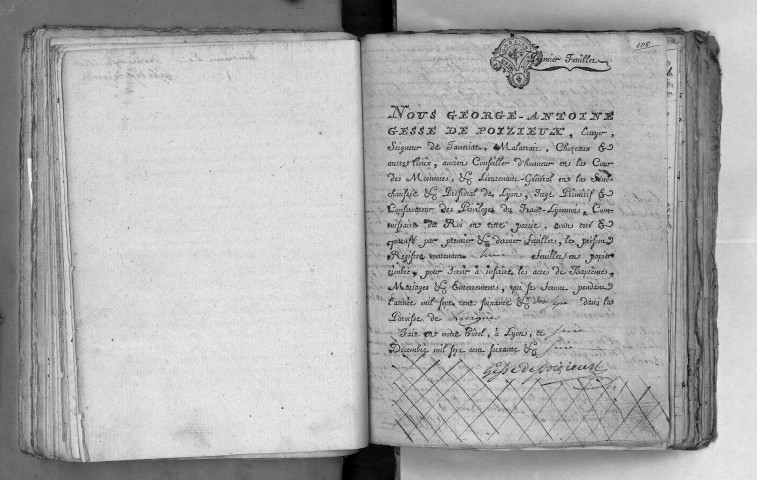 108
Premier Feuillet
NOUS GEORGE-ANTOINE
GESSE DE POIZIEUX, Ecuyer,
Seigneur de Janeriat, Malatrait, Chozeaux &
autre lieux, ancien Conseiller d'honneur en la Cour
des Monnoies, & Lieutenant-Général en la Séné-
chaussée & Présidial de Lyon, Juge Primitif &
Conservateur des Privileges du Franc-Lyonnois, Com-
missaire du Roi en cette partie, avons coté &
paraffé par premier & dernier feuillets, le présent
Registre contenant feuillets en papier
timbré, pour servir à inscrire les actes de Baptêmes,
Mariages & Enterrements, qui se feront pendant
l'année mil sept cent soixante & dix sept dans la
Paroisse de
Fait en notre Hôtel, à Lyon, ce
Décembre mil sept cent soixante &
Gesse de poizieux